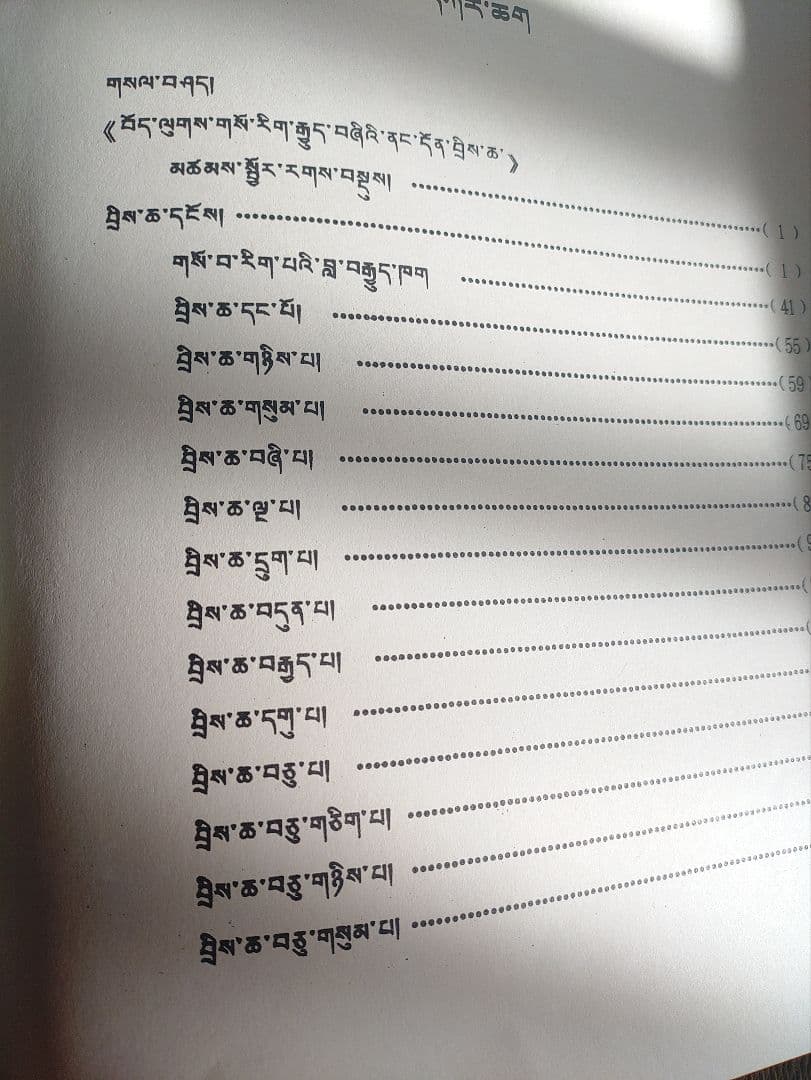 དཀར་ཆག
གསལ་བཤད།
《བོད་ལུགས་གསོ་རིག་རྒྱུད་བཞིའི་ནང་དོན་བྲིས་ཆ་》
མཚམས་སྦྱོར་རགས་བསྡུས། ………………( 1 )
བྲིས་ཆ་དངོས། ………………( 1 )
གསོ་བ་རིག་པའི་བླ་བརྒྱུད་ཁག ………………( 41 )
བྲིས་ཆ་དང་པོ། ………………( 55 )
བྲིས་ཆ་གཉིས་པ། ………………( 59
བྲིས་ཆ་གསུམ་པ། ………………( 69
བྲིས་ཆ་བཞི་པ། ………………(
བྲིས་ཆ་ལྔ་པ། ………………(
བྲིས་ཆ་དྲུག་པ། ………………(
བྲིས་ཆ་བདུན་པ། ………………(
བྲིས་ཆ་བརྒྱད་པ། ………………(
བྲིས་ཆ་དགུ་པ། ………………
བྲིས་ཆ་བཅུ་པ། ………………
བྲིས་ཆ་བཅུ་གཅིག་པ། ………………
བྲིས་ཆ་བཅུ་གཉིས་པ། ………………
བྲིས་ཆ་བཅུ་གསུམ་པ། ………………